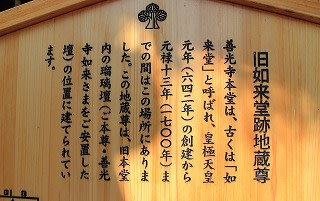 旧如来堂跡地蔵尊
善光寺本堂は、古くは「如
来堂」と呼ばれ、皇極天皇
元年(六四二年)の創建から
元禄十三年(一七〇〇年)ま
での間はこの場所にありま
した。この地蔵尊は、旧本堂
内の瑠璃壇(ご本尊・善光
寺如来さまをご安置した
壇)の位置に建てられてい
ます。